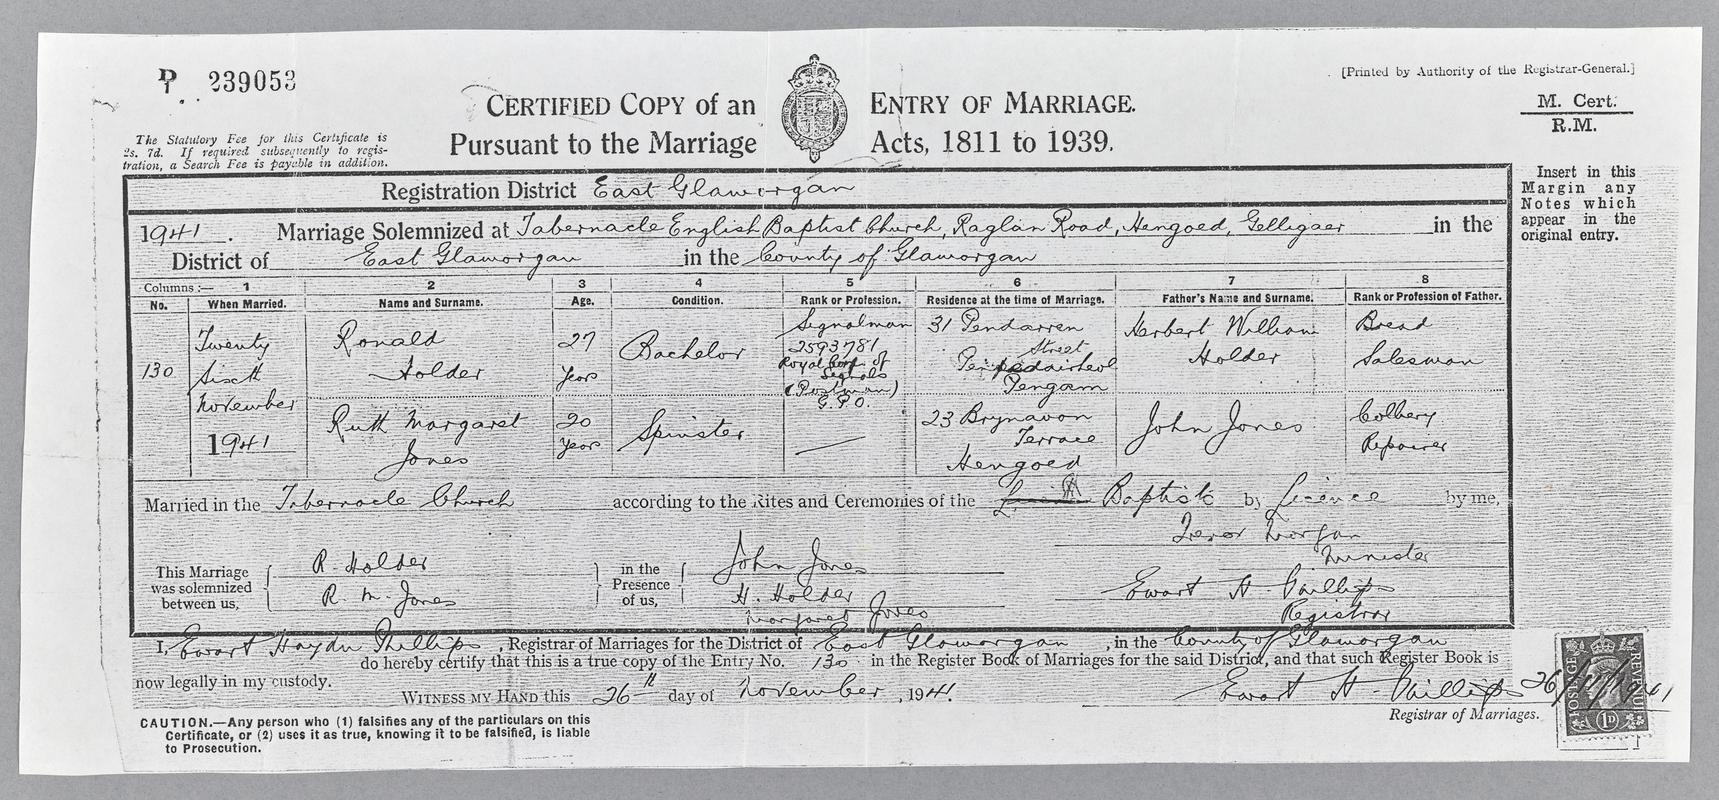 P 239053
[Printed by Authority of the Registrar-General.]
CERTIFIED COPY of an ENTRY OF MARRIAGE.
Pursuant to the Marriage Acts, 1811 to 1939.
M. Cert.
R.M.
The Statutory Fee for this Certificate is
2s. 7d. If required subsequently to regis-
tration, a Search Fee is payable in addition.
Insert in this
Margin any
Notes which
appear in the
original entry.
Registration District East Glamorgan
1941. Marriage Solemnized at Tabernacle English Baptist Church, Raglan Road, Hengoed, Gelligaer in the
District of East Glamorgan in the County of Glamorgan
Columns :— 1 2 3 4 5 6 7 8
No. When Married. Name and Surname. Age. Condition. Rank or Profession. Residence at the time of Marriage. Father's Name and Surname. Rank or Profession of Father.
130
Twenty
Sixth
November
1941
Ronald
Holder
27
years
Bachelor
Signalman
2593781
Royal Corps of
Signals
(Postman)
G.P.O.
31 Pendarren
Street
Pengam
Herbert William
Holder
Bread
Salesman
Ruth Margaret
Jones
20
years
Spinster
—
23 Brynavon
Terrace
Hengoed
John Jones
Colliery
Repairer
Married in the Tabernacle Church according to the Rites and Ceremonies of the Baptists by Licence by me,
Trevor Morgan
Minister
This Marriage
was solemnized
between us,
R. Holder
R. M. Jones
in the
Presence
of us,
John Jones
H. Holder
Margaret Jones
Ewart H. Phillips
Registrar
I, Ewart Haydn Phillips, Registrar of Marriages for the District of East Glamorgan, in the County of Glamorgan
do hereby certify that this is a true copy of the Entry No. 130 in the Register Book of Marriages for the said District, and that such Register Book is
now legally in my custody.
WITNESS MY HAND this 26th day of November, 1941.
Ewart H. Phillips 26/11/1941
Registrar of Marriages.
POSTAGE REVENUE
1D
CAUTION.—Any person who (1) falsifies any of the particulars on this
Certificate, or (2) uses it as true, knowing it to be falsified, is liable
to Prosecution.